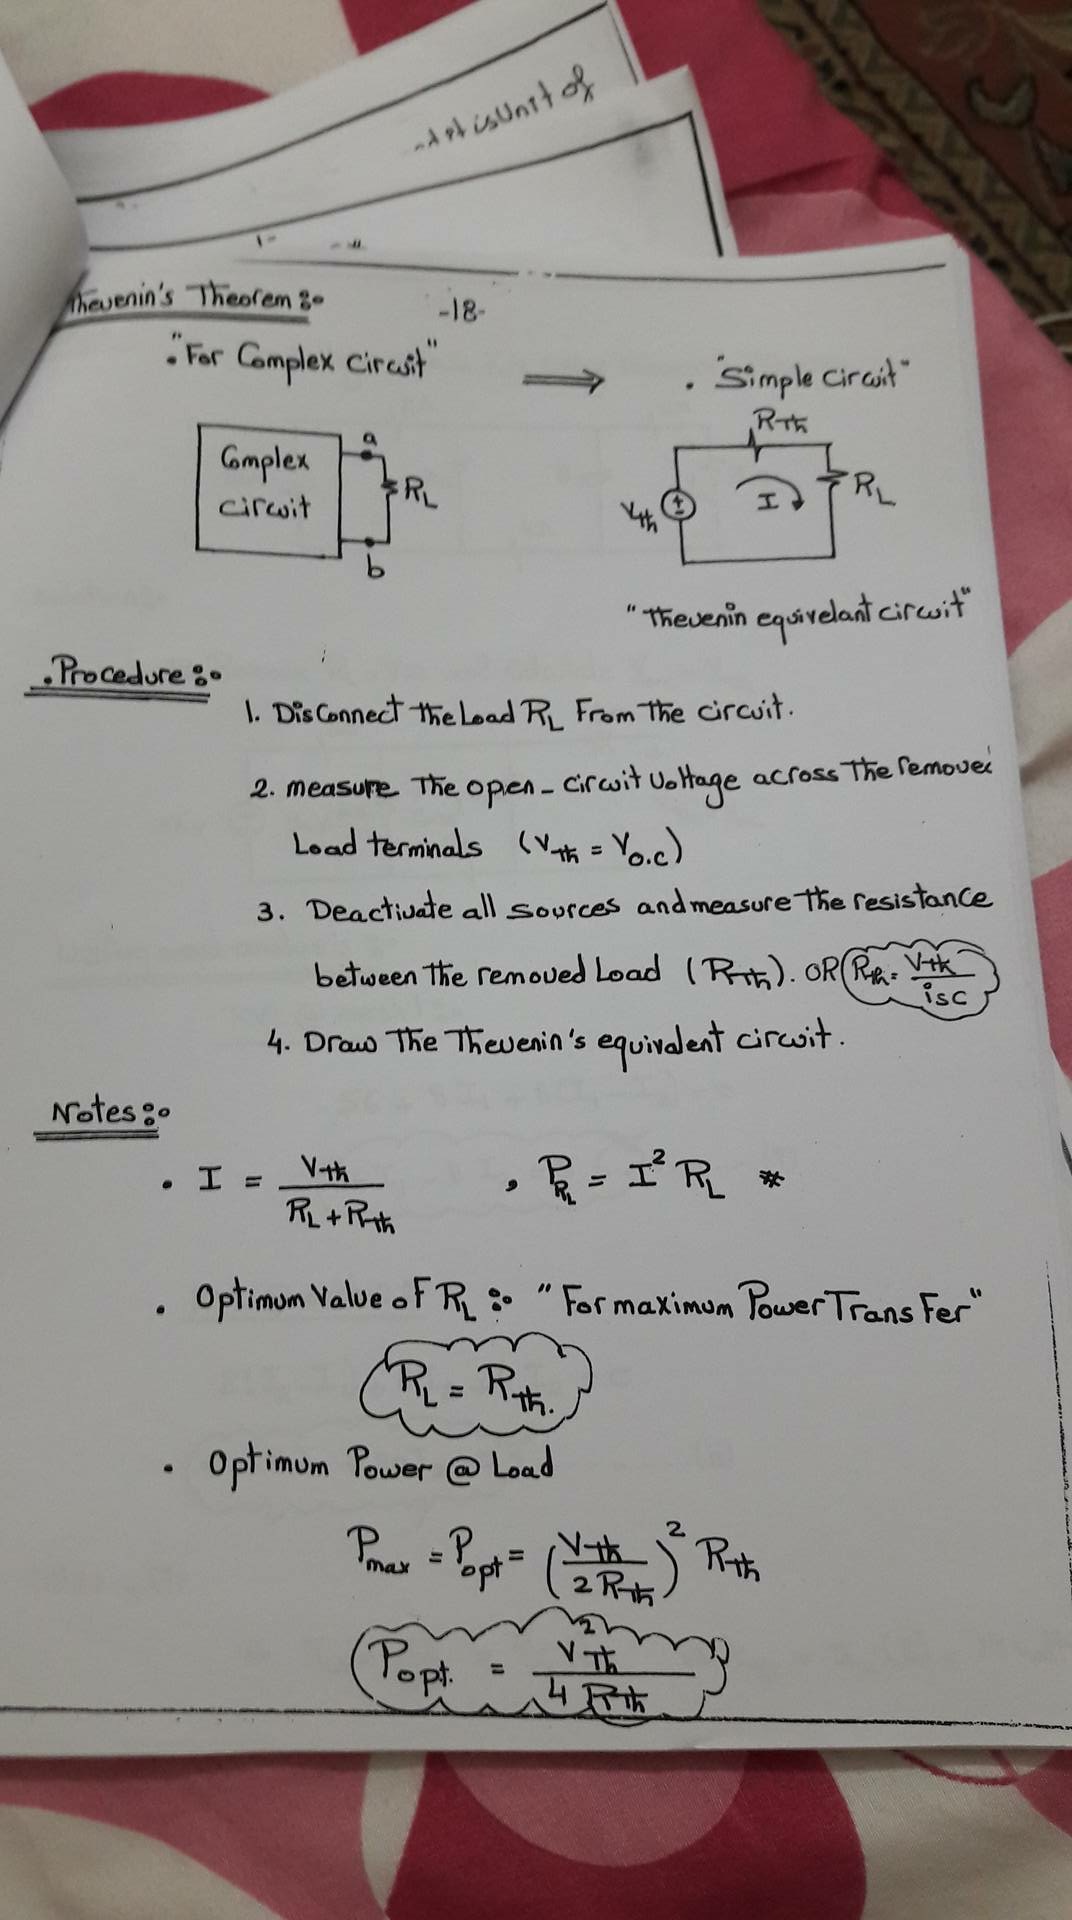 -t is Unit of
Thevenin's Theorem:-
-18-
. "For Complex Circuit" ⟹ . "Simple Circuit"
Complex
circuit
a
RL
b
RTh
Vth
+
-
I
RL
"Thevenin equivelant circuit"
. Procedure:-
1. Disconnect the Load RL From The circuit.
2. measure The open-circuit Voltage across The removed
Load terminals (Vth = Vo.c)
3. Deactivate all sources and measure the resistance
between the removed Load (Rth). OR Rth = Vth / isc
4. Draw The Thevenin's equivalent circuit.
Notes:-
. I = Vth / (RL + Rth) , PRL = I² RL *
. Optimum Value of RL :- "For maximum Power Transfer"
RL = Rth.
. Optimum Power @ Load
Pmax = Popt = (Vth / 2 Rth)² Rth
Popt. = V²Th / 4 Rth